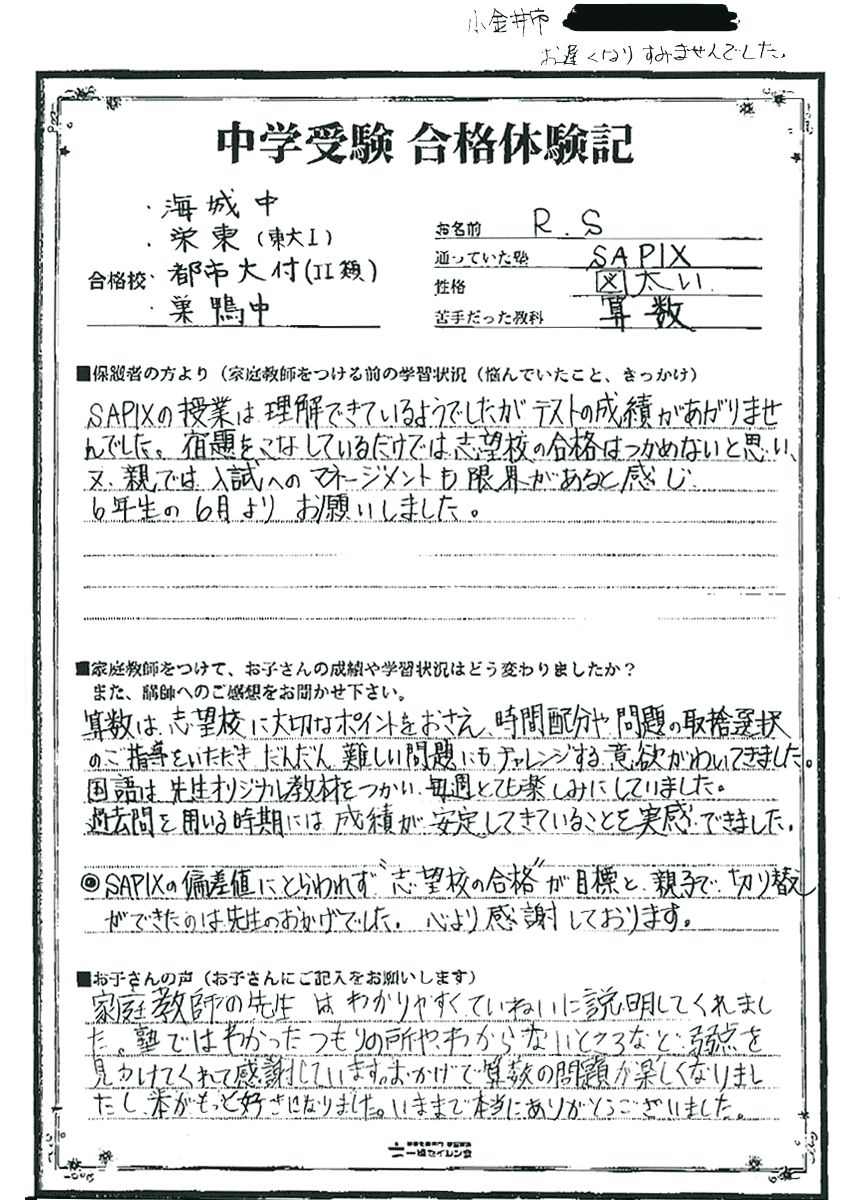 小金井市
お遅くなりすみませんでした。
中学受験 合格体験記
・海城中
・栄東(東大I)
合格校・都市大付(II類)
・巣鴨中
お名前 R.S
通っていた塾 SAPIX
性格 図太い
苦手だった教科 算数
■保護者の方より(家庭教師をつける前の学習状況(悩んでいたこと、きっかけ)
SAPIXの授業は理解できているようでしたがテストの成績があがりませ
んでした。宿題をこなしているだけでは志望校の合格はつかめないと思い、
又、親では入試へのマネージメントも限界があると感じ
6年生の6月よりお願いしました。
■家庭教師をつけて、お子さんの成績や学習状況はどう変わりましたか?
また、講師へのご感想をお聞かせ下さい。
算数は、志望校に大切なポイントをおさえ、時間配分や問題の取捨選択
のご指導をいただきだんだん難しい問題にもチャレンジする意欲がわいてきました。
国語は先生オリジナル教材をつかい、毎週とても楽しみにしていました。
過去問を用いる時期には成績が安定してきていることを実感できました。
◎SAPIXの偏差値にとらわれず"志望校の合格"が目標と、親子で切り替え
ができたのは先生のおかげでした。心より感謝しております。
■お子さんの声(お子さんにご記入をお願いします)
家庭教師の先生はわかりやすくていねいに説明してくれまし
た。塾ではわかったつもりの所やわからないところなど弱点を
見つけてくれて感謝しています。おかげで算数の問題が楽しくなりまし
たし、本がもっと好きになりました。いままで本当にありがとうございました。